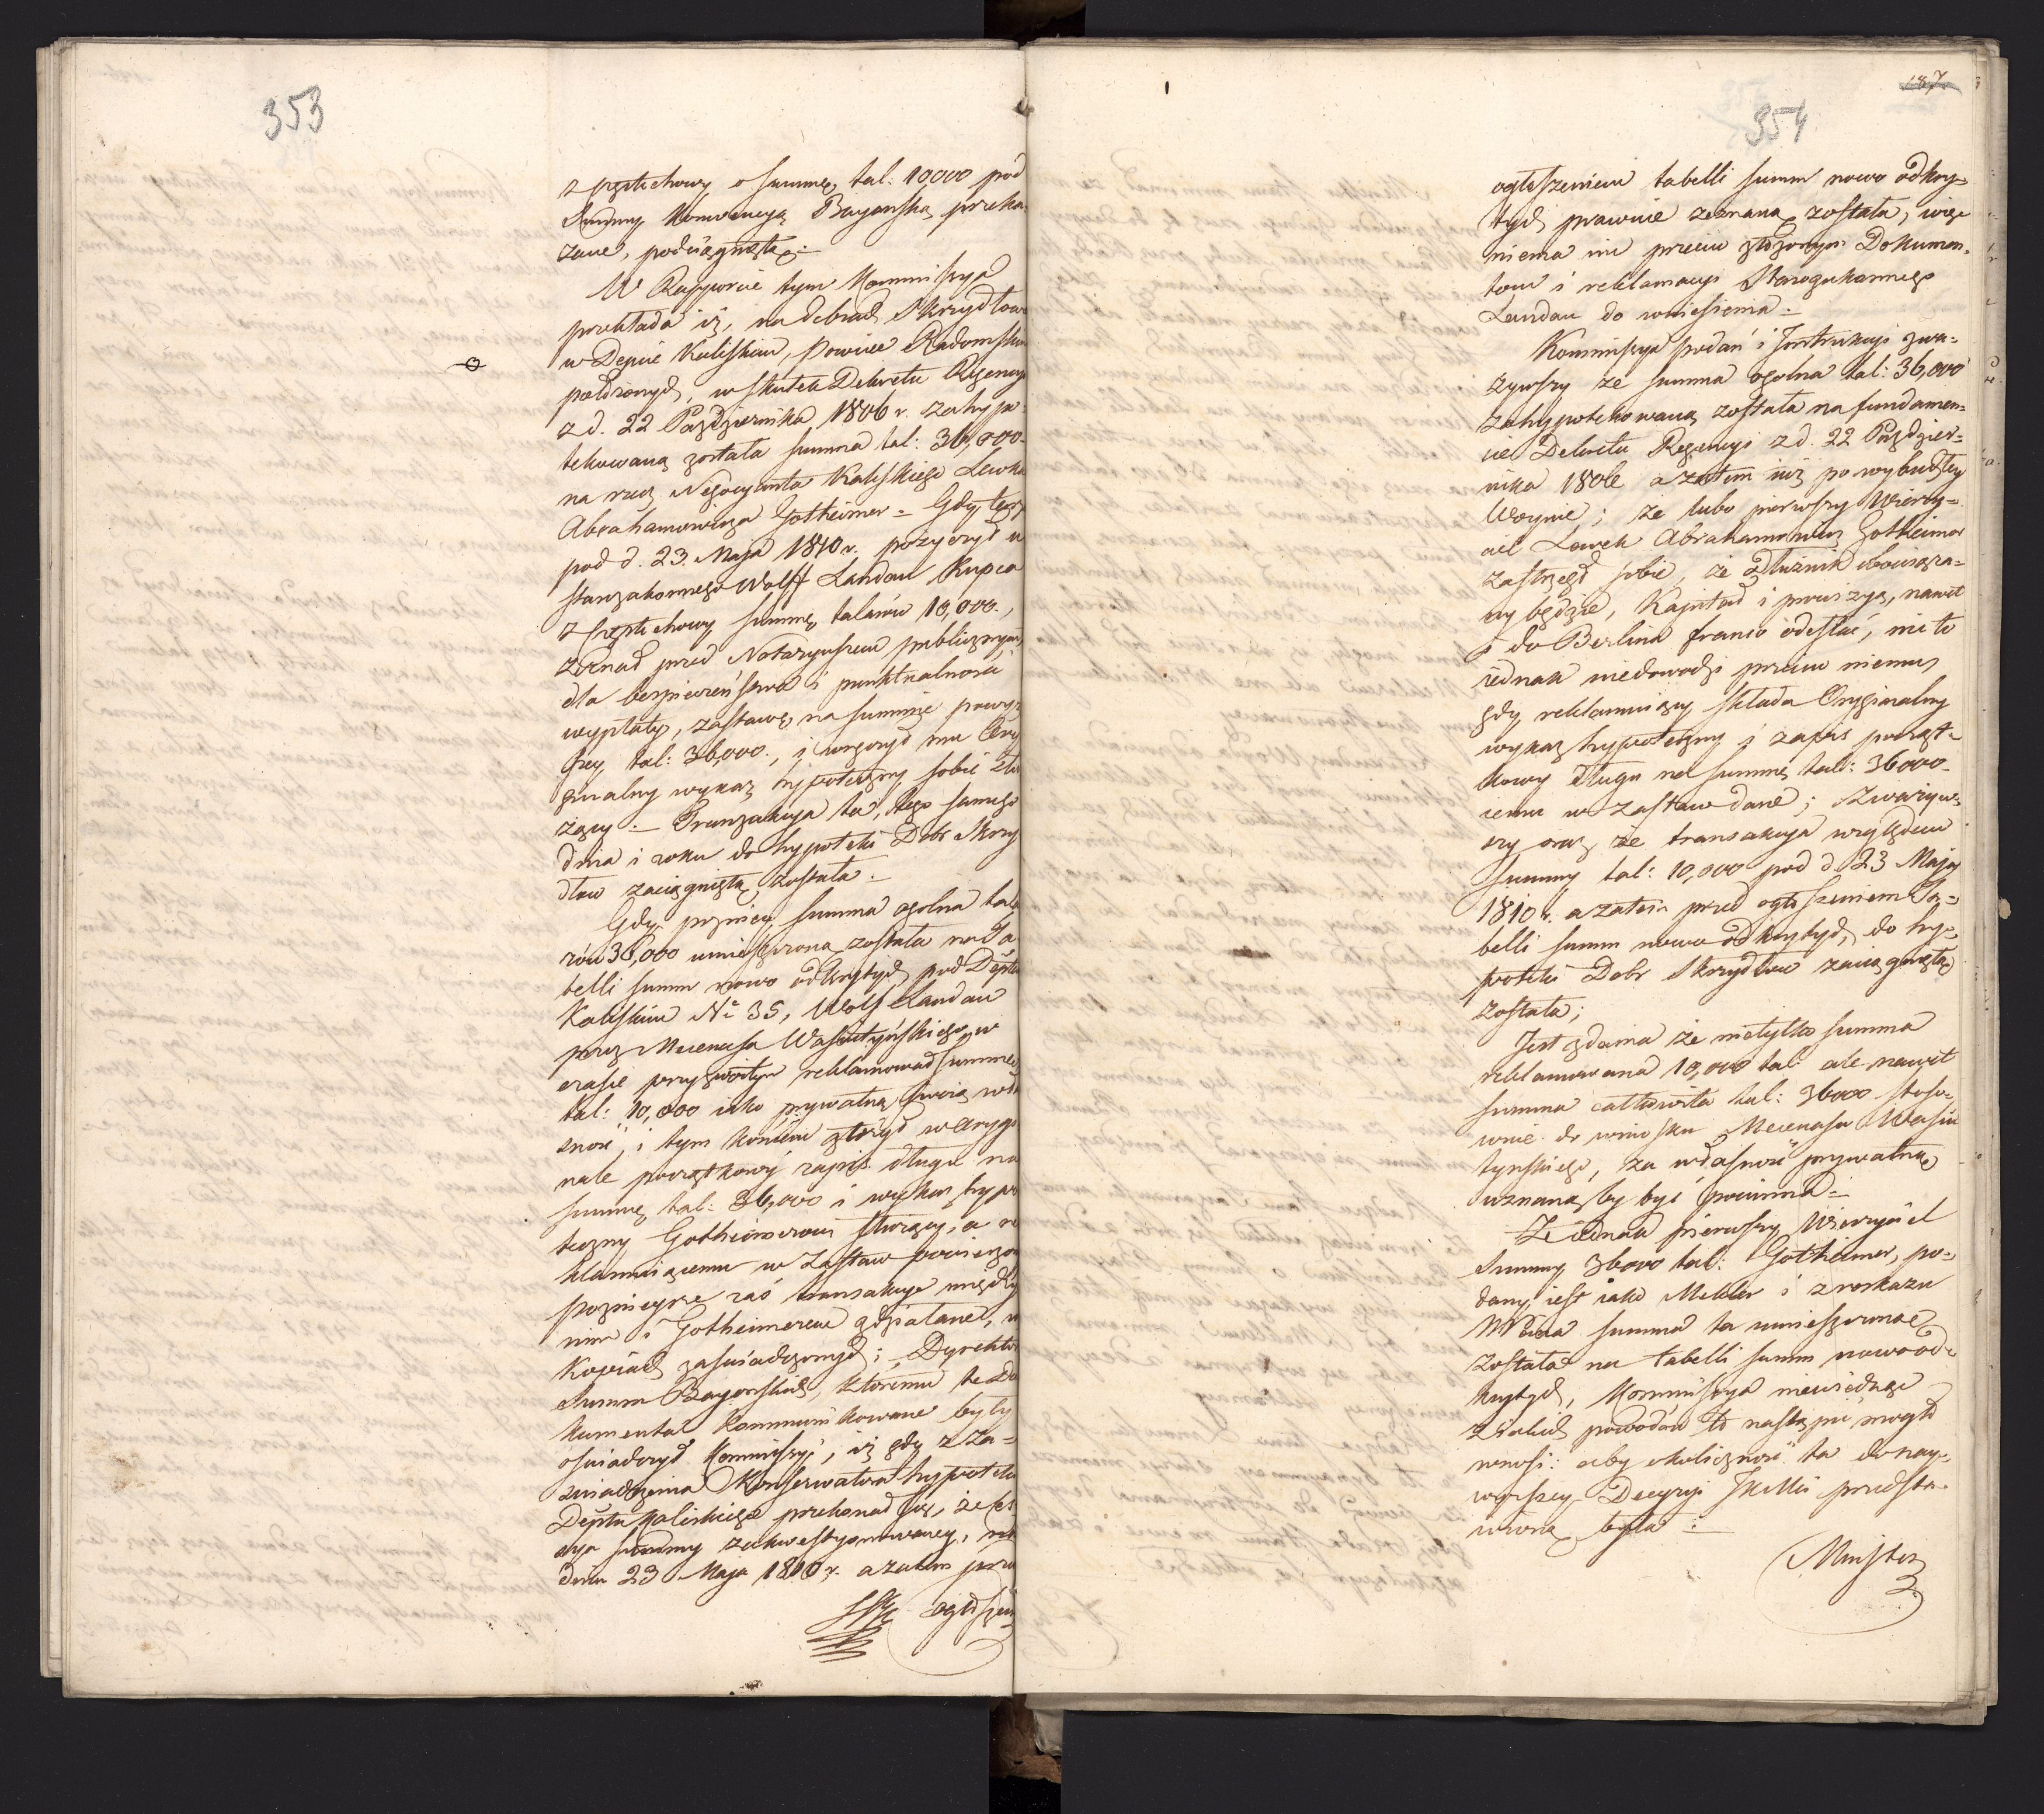 353
z Częstochowy o summę tal: 10000 pod
Summy Konwencyą Bayońską przeka-
zane, podciągniętą.
W Rapporcie tym Kommissya
przekłada iż, na dobrach Skrzydłow
w Depcie Kaliskim, Powiecie Radomsk
położonych, w skutek Dekretu Regencyi
z d. 22 Października 1806 r. zahypo-
tekowaną została summa tal: 36,000
na rzecz Negocyanta Kaliskiego Lewka
Abrahamowicza Gotheimer = Gdy tenże
pod d. 23. Maja 1810 r. pożyczył u
starozakonnego Wolff Landau Kupca
z Częstochowy summę talarów 10,000.,
zeznał przed Notaryuszem publicznym,
dla bespieczeństwa i punktualności
wypłaty, zastawę na summie powyż-
szey tal: 36,000., i wręczył mu Ory
ginalny wykaz hypoteczny sobie słu
żący. — Tranzakcya ta, tego samego
dnia i roku do hypoteki Dobr Skrzy
dłow zaciągniętą została.
Gdy poźniey summa ogolna tala
rów 36,000 umieszczona została na Ta
belli summ nowo odkrytych pod Deptem
Kaliskim No 35, Wolf Landau
przez Mecenasa Wasiutyńskiego w
czasie przyzwoitym reklamował summę
tal: 10,000 iako prywatną swoią wła
sność, i tym końcem złożył w Orygi
nale początkowy zapis długu na
summę tal: 36,000 i wykaz hypo
teczny Gotheimerowi służący, a re
klamuiącemu w Zastaw powierzon
poźnieysze zaś transakcye między
nim i Gotheimerem zdziałane, w
Kopiach zaświadczonych; Dyrektor
Summ Bayońskich, ktoremu te Do
kumenta kommunikowane były
oświadczył Kommissyi, iż gdy z Za-
świadczenia Konserwatora hypotek
Deptu Kaliskiego przekonał się, że ces
sya summy zakwestyonowaney, na
dniu 23 Maja 1810 r. a zatem przed
ogłoszen
187
354
ogłoszeniem tabelli summ nowo odkry-
tych prawnie zeznaną została, więc
niema nic przeciw złożonym Dokumen-
tom i reklamacyi Starozakonnego
Landau do wniesienia.
Kommissya podań i Instrukcyi zwa-
żywszy że summa ogolna tal: 36,000
zahypotekowaną została na fundamen-
cie Dekretu Regencyi z d. 22 Paździer-
nika 1806 a zatem iuż po wybuchłey
Woynie; że lubo pierwszy Wierzy-
ciel Lewek Abrahamowicz Gotheimer
zastrzegł sobie, że dłużnik obowiąza-
ny będzie, Kapitał i prowizyą, nawet
i do Berlina franco odesłać, nic to
iednak niedowodzi przeciw niemu,
gdy reklamuiący składa Oryginalny
wykaz hypoteczny i zapis począt-
kowy długu na summę tal: 36000
iemu w Zastaw dane; Zważyw-
szy oraz że transakcya względem
summy tal: 10,000 pod d 23 Maja
1810 r. a zatem przed ogłoszeniem Ta-
belli summ nowo odkrytych, do hy-
poteki Dobr Skrzydłow zaciągniętą
została;
Jest zdania że nietylko summa
reklamowana 10,000 tal. ale nawet
summa całkowita tal: 36000 stoso-
wnie do wniosku Mecenasa Wasiu
tyńskiego, za własność prywatną
uznaną by być powinna.
Że iednak pierwszy Wierzyciel
Summy 36000 tal: Gotheimer, po-
dany iest iako Mekler i z roskazu
summa ta umieszczona
została na tabelli summ nowo od-
krytych, Kommissya niewiedząc
z iakich powodów to nastąpić mogło
wnosi: aby okoliczność ta do nay-
wyższey Decyzyi JKMci przedsta-
wioną była.
Minister